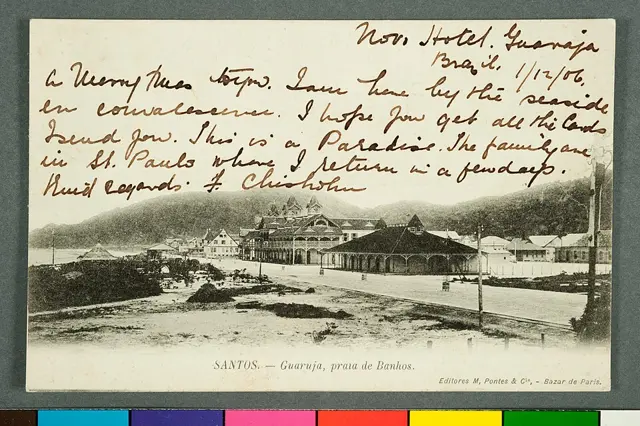 Novo Hotel. Guaruja
Brazil. 1/12/06.
A Merry Xmas to you. I am here by the seaside
en convalescence. I hope you get all the Cards
I send you. This is a Paradise. The family are
in St. Paulo where I return in a few days.
Kind regards. F. Chisholm
SANTOS. — Guaruja, praia de Banhos.
Editores M. Pontes & Cia, – Bazar de Paris.